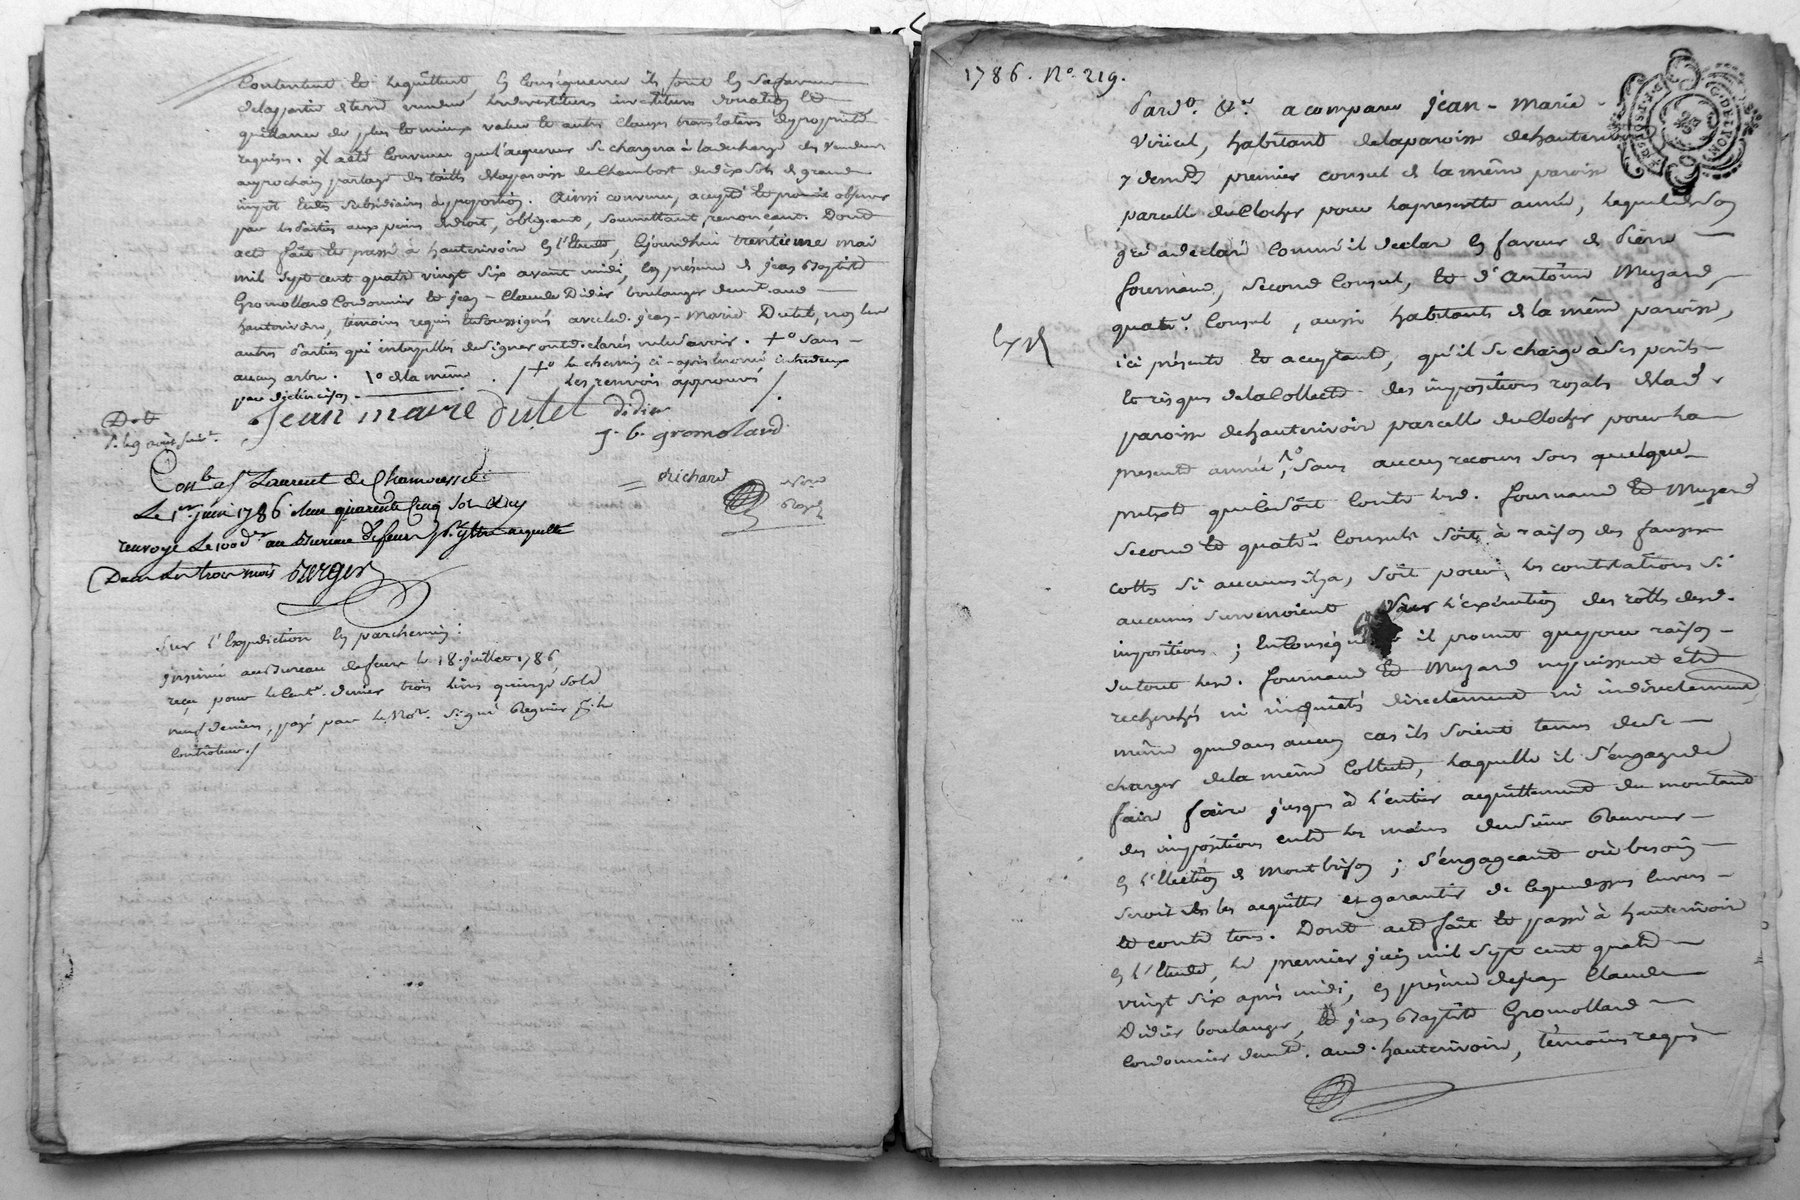 Contentent et le quittent, en conséquence ils font en sa faveur
de la partie de terre vendue les devestitures investitures donation de
quittance de plus et mieux value et autres clauses translatives de propriété
requises. Il a été convenu que l'acquereur se chargera à la décharge des vendeurs
au prochain partage des tailles de la paroisse de Chambost de dix sols de grande
impot et des subsidiaires à proportion. Ainsi convenu, accepté et promis observer
par les parties aux peines de droit, obligeant, soumettant, renonçant. Dont
acte fait et passé à hauterivoire en l'Etude, Cejourdhui trentieme mai
mil sept cent quatre vingt six avant midi, en présence de jean Baptiste
Gromollard Cordonnier et jean-Claude Didier boulanger demt. aud.
hauterivoire, témoins requis et soussignés avec led. jean-Marie Dutel, non les
autres parties qui interpellées de signer ont déclarés ne le savoir. +° Sans
aucun arbre. 1° de la même. /+° le chemin ci-après énoncé, entredeux
par Les renvois approuvés /.
Jean marie Dutel didier
J. b. gromolard
Dot
p. le 9 août suivt.
richard
Conl. a St Laurent de Chamousset
Le 1er juin 1786 Reçu quarante Cinq sols et
renvoyé Le 100e d. au Bureau de feurs pr. y être acquitté
Dans les trois mois Burger
Sur l'Expédition en parchemin:
Insinué au Bureau de feurs le 18. juillet 1786,
reçu pour le Cente. denier trois livres quinze sols
neuf deniers, payé par Le Not. Signé Regnier fils
Contrôleur./
1786. N°. 219.
Pard°. &a. a comparu jean-marie
Viricel, habitant de la paroisse de hauterivoire
y demt. premier consul de la même paroisse
parcelle du Clocher pour la presente année, lequel de son
gré a déclaré comme il déclare en faveur de Pierre
fournand, second Consul, et d'antoine Muzard,
quatre. Consul, aussi habitants de la même paroisse,
ici présents et acceptants, qu'il se charge à ses perils
et risques de la Collecte des impositions royales de lad.
paroisse de hauterivoire parcelle du Clocher pour la
presente année, 1° sans aucun recours sous quelque
pretexte que ce soit contre lesd. fournand et Muzard
second et quatre. Consuls soit à raison des fausses
cottes si aucunes il y a, soit pour les contestations si
aucunes survenoient dans l'exécution des rolles desd.
impositions; En conséquence il promet que pour raison
du tout lesd. fournand et Muzard ne puissent etre
recherchés ni inquiétés directement ni indirectement
même que dans aucun cas ils soient tenus de se
charger de la même Collecte, laquelle il s'engage de
faire faire jusques à l'entier acquittement du montant
des impositions entre les mains du sieur Receveur
en l'Election de Montbrison; s'engageant où besoin
seroit de les acquitter et garantir de ce que dessus envers
et contre tous. Dont acte fait et passé à hauterivoire
en l'Etude, le premier juin mil sept cent quatre
vingt six après midi, en présence de jean Claude
Didier boulanger, et jean Baptiste Gromollard
Cordonnier demt. aud. hauterivoire, témoins requis